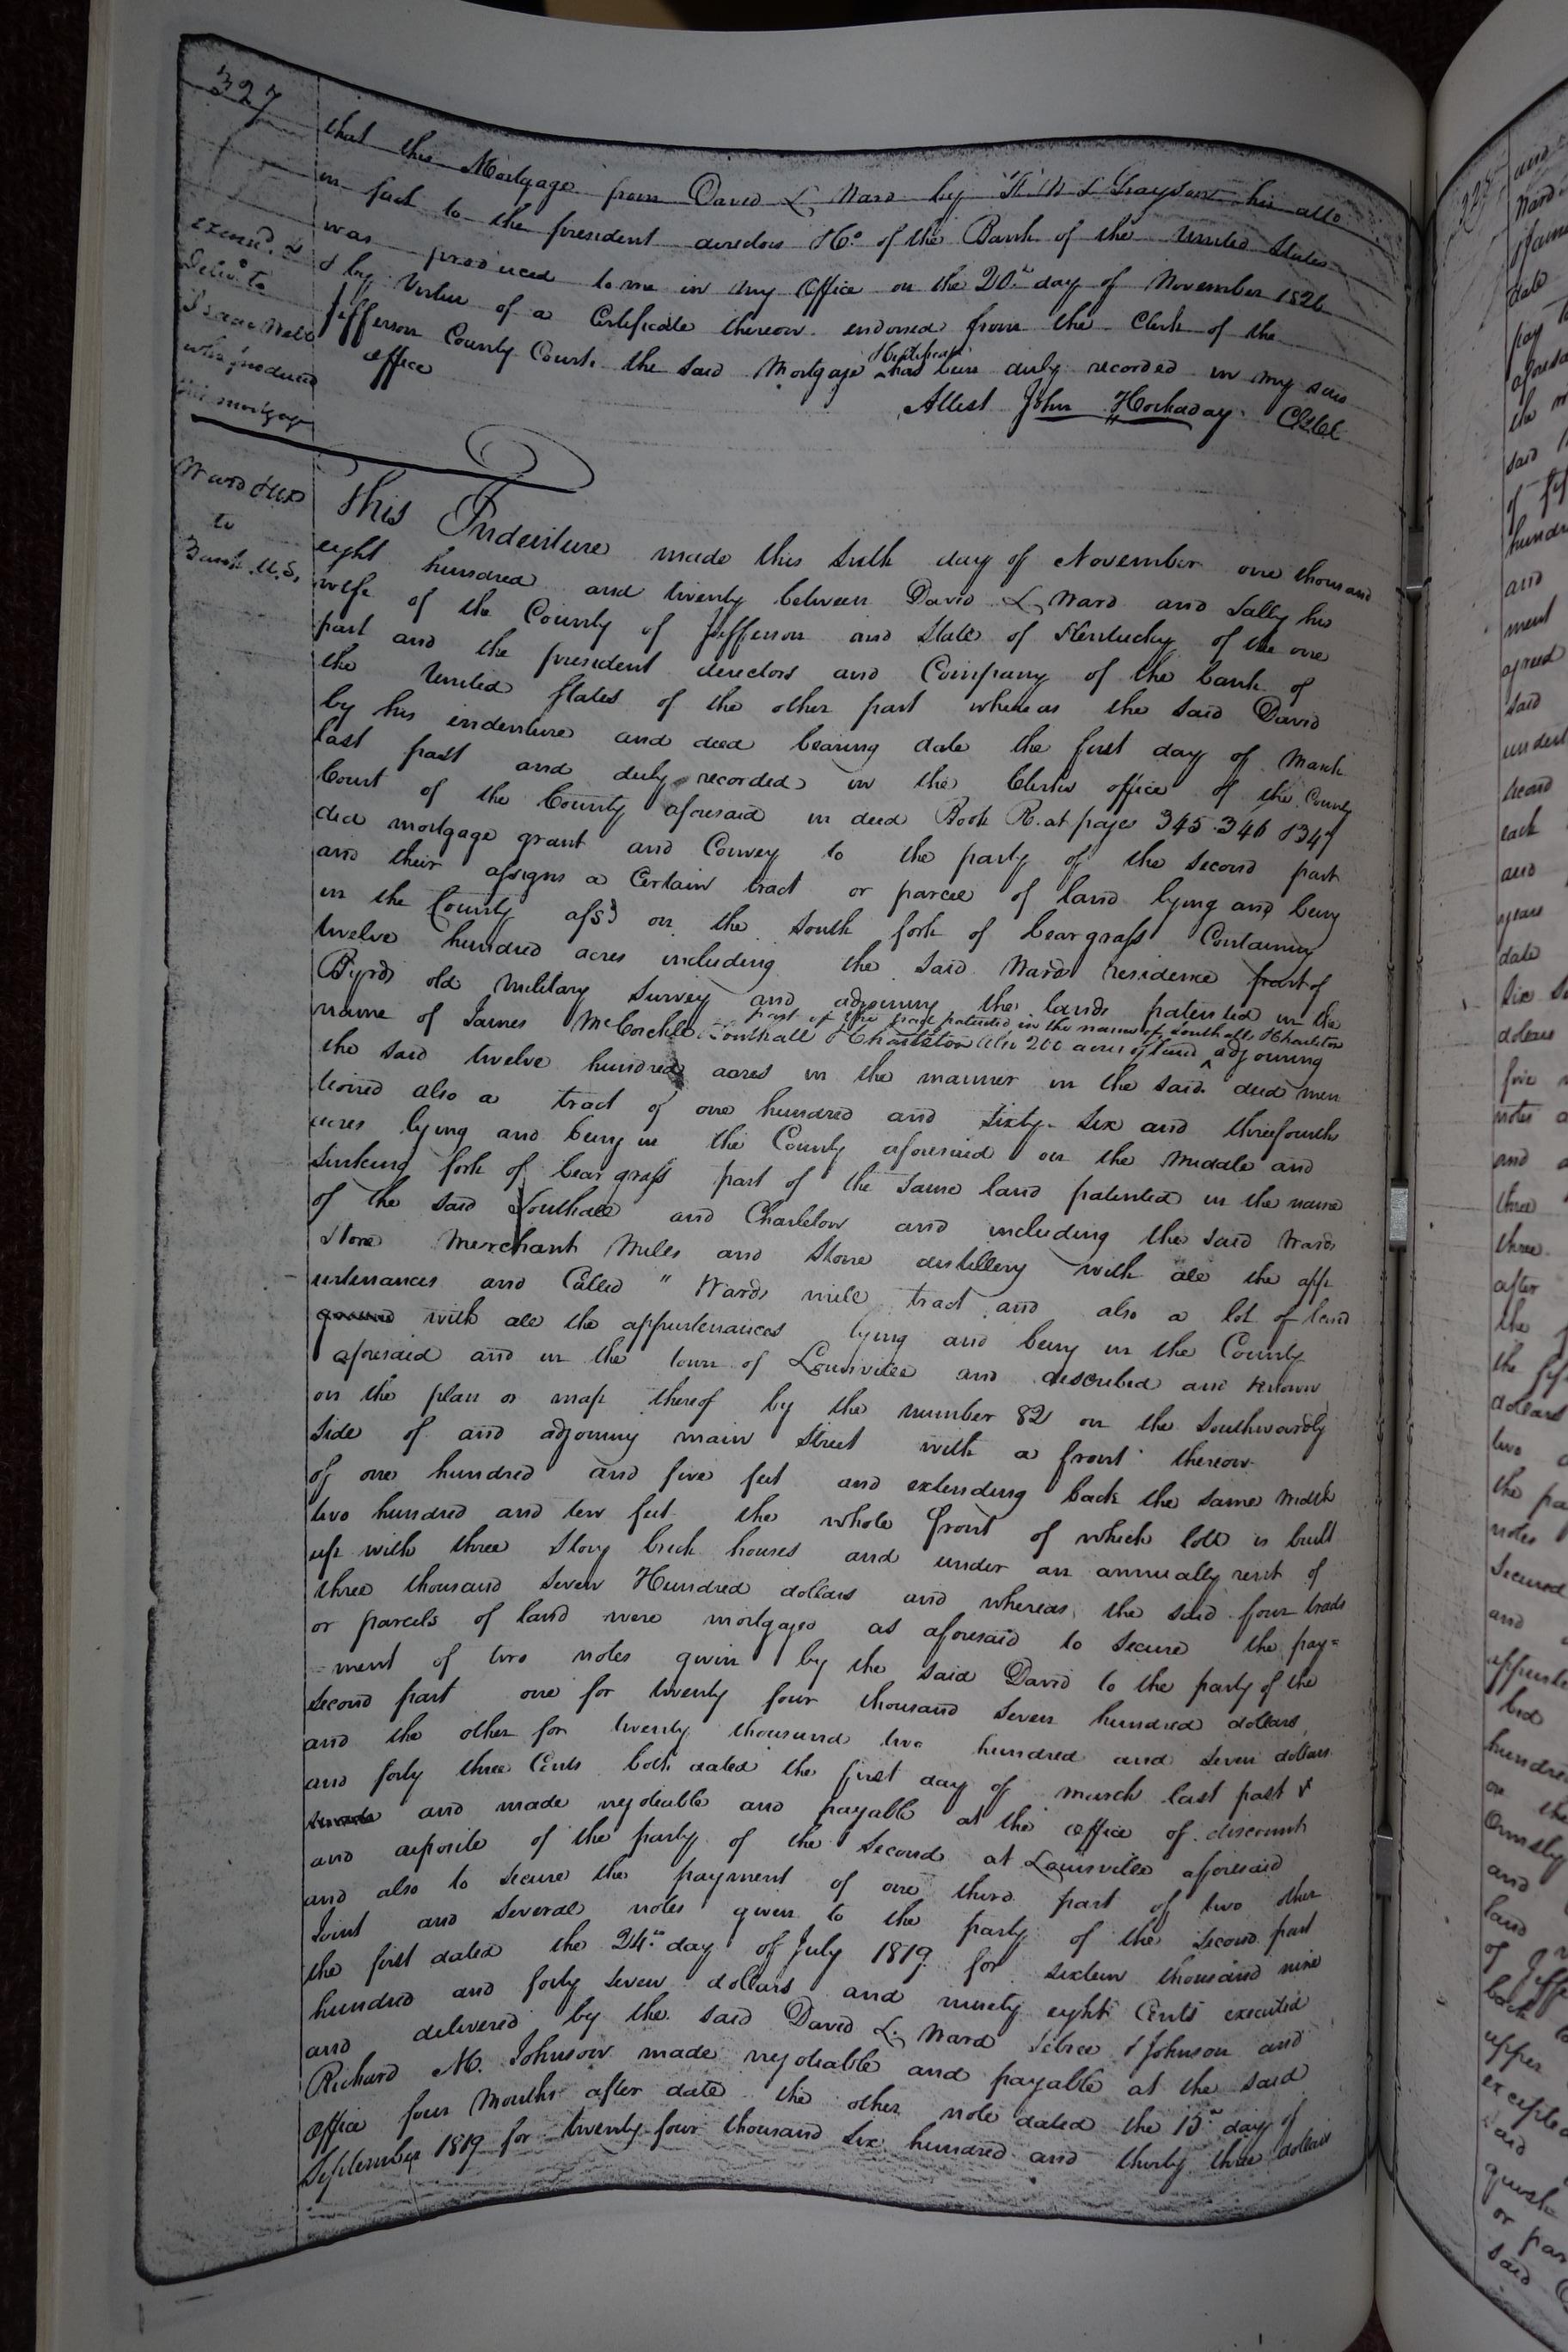 327
that this Mortgage from David L Ward by F W S Grayson his atto
in fact to the president directors &Co. of the Bank of the United States
was produced to me in my Office on the 20th day of November 1820
& by Virtue of a Certificate thereon endorsed from the Clerk of the
Jefferson County Court. the said Mortgage &Certificate has been duly recorded in my said
office
Attest John Hockaday Clk
examd. &
Delivd. to
Isaac
who produced
this mortgage
Ward &ux
to
Bank U.S.
This Indenture made this sixth day of November one thousand
eight hundred and twenty between David L Ward and Sally his
wife of the County of Jefferson and State of Kentucky of the one
part and the president directors and Company of the bank of
the United States of the other part whereas the said David
by his indenture and deed bearing date the first day of March
last past and duly recorded in the Clerks office of the County
Court of the County aforesaid in deed Book R. at pages 345. 346 &347
did mortgage grant and Convey to the party of the second part
and their assigns a Certain tract or parcel of land lying and being
in the County afsd on the South fork of beargrass Containing
twelve hundred acres including the said Wards residence part of
Byrds old Military Survey and adjoining the lands patented in the
name of James McCorkle Southall & Charleton also 200 acres of land adjoining
part of the tract patented in the name of Southall &Charleton
the said twelve hundred acres in the manner in the said deed men
tioned also a tract of one hundred and Sixty-six and threefourths
acres lying and being in the County aforesaid on the middle and
Sinking fork of bear grass part of the same land patented in the name
of the said Southall and Charleton and including the said Wards
Stone Merchant Mills and Stone distillery with all the app
urtenances and Called " Wards mill tract and also a lot of land
ground with all the appurtenances lying and being in the County
aforesaid and in the town of Louisville and described and known
on the plan or map thereof by the number 82 on the Southwardly
Side of and adjoining main Street with a front thereon
of one hundred and five feet and extending back the same width
two hundred and ten feet the whole front of which lott is built
up with three Story brick houses and under an annually rent of
three thousand Seven Hundred dollars and whereas the said four tracts
or parcels of land were mortgaged as aforesaid to Secure the pay=
=ment of two notes given by the said David to the party of the
second part one for twenty four thousand Seven hundred dollars,
and the other for twenty thousand two hundred and Seven dollars
and forty three Cents both dated the first day of march last past &
and made negotiable and payable at the office of discount
and deposite of the party of the Second at Louisville aforesaid
and also to secure the payment of one third part of two other
Joint and Several notes given to the party of the second part
the first dated the 24th day of July 1819 for sixteen thousand nine
hundred and forty Seven dollars and ninety eight Cents executed
and delivered by the said David L. Ward Sebree & Johnson and
Richard M. Johnson made negotiable and payable at the said
Office four Months after date the other note dated the 15th day of
September 1819 for twenty-four thousand Six hundred and thirty three dollars